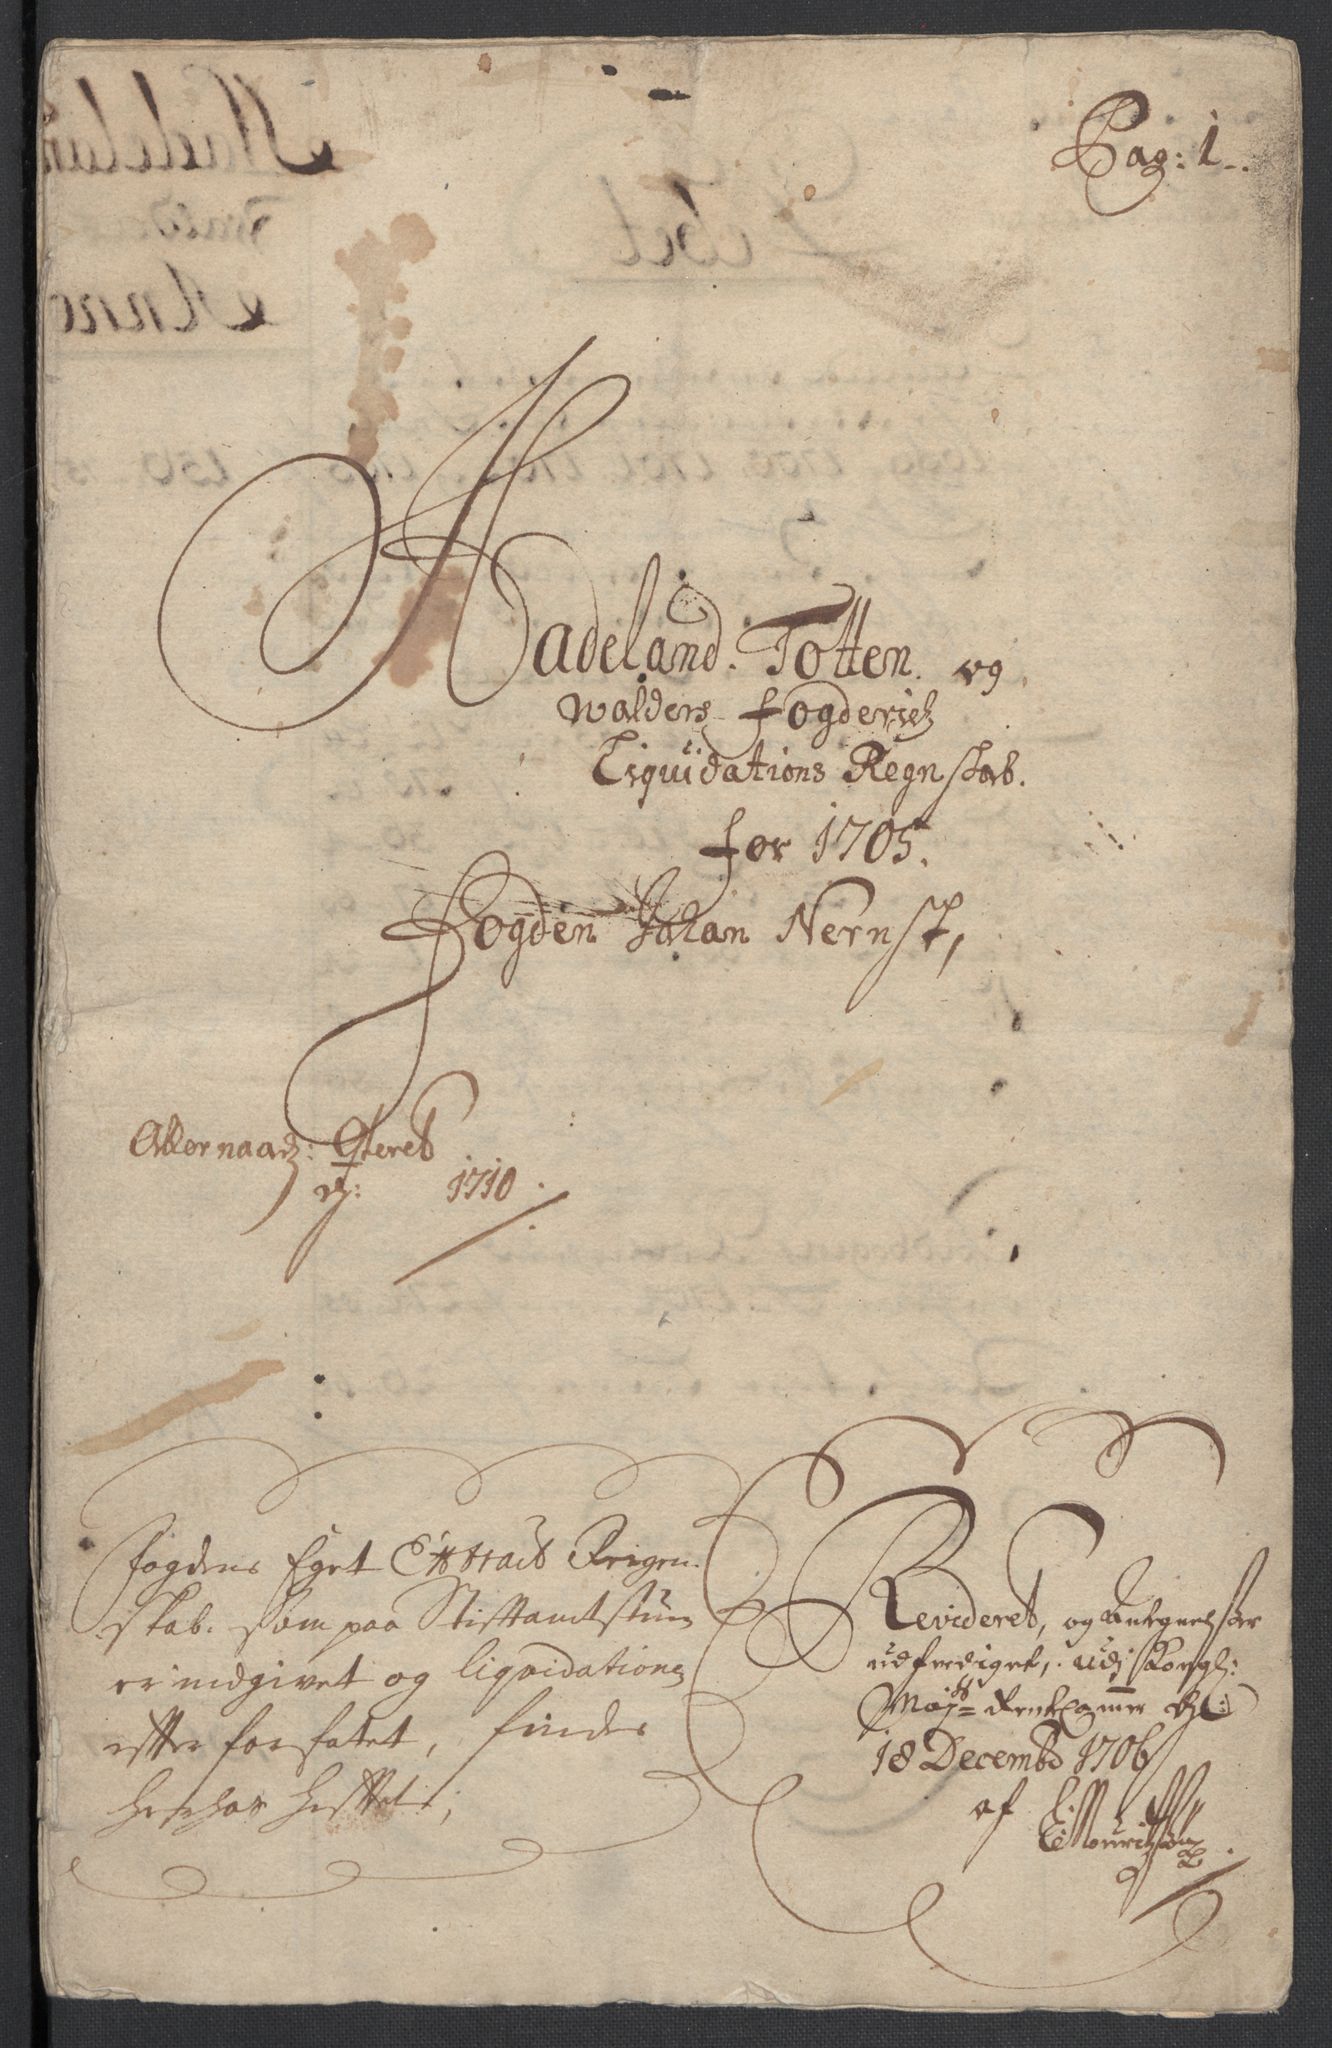 Pag: 1.
Hadeland. Totten. og
Walders Fogderiets
Liquidations Regnskab.
for 1705.
Fogden Johan Nernst,
qteret
1710.
Fogdens Eget Extract Reigen-
skab. som paa Stiftamtstuen
er indgivet og liquidationen
efter forfatet, findes
herhos hefftet,
Revideret, og Antegnelser
udferdiget, udj Kongl:
Mayts RenteCammer d:
18 Decembr 1706
af